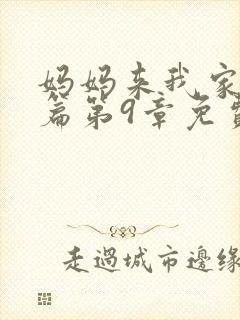 妈妈来我家
篇第9章免费
走過城市邊緣